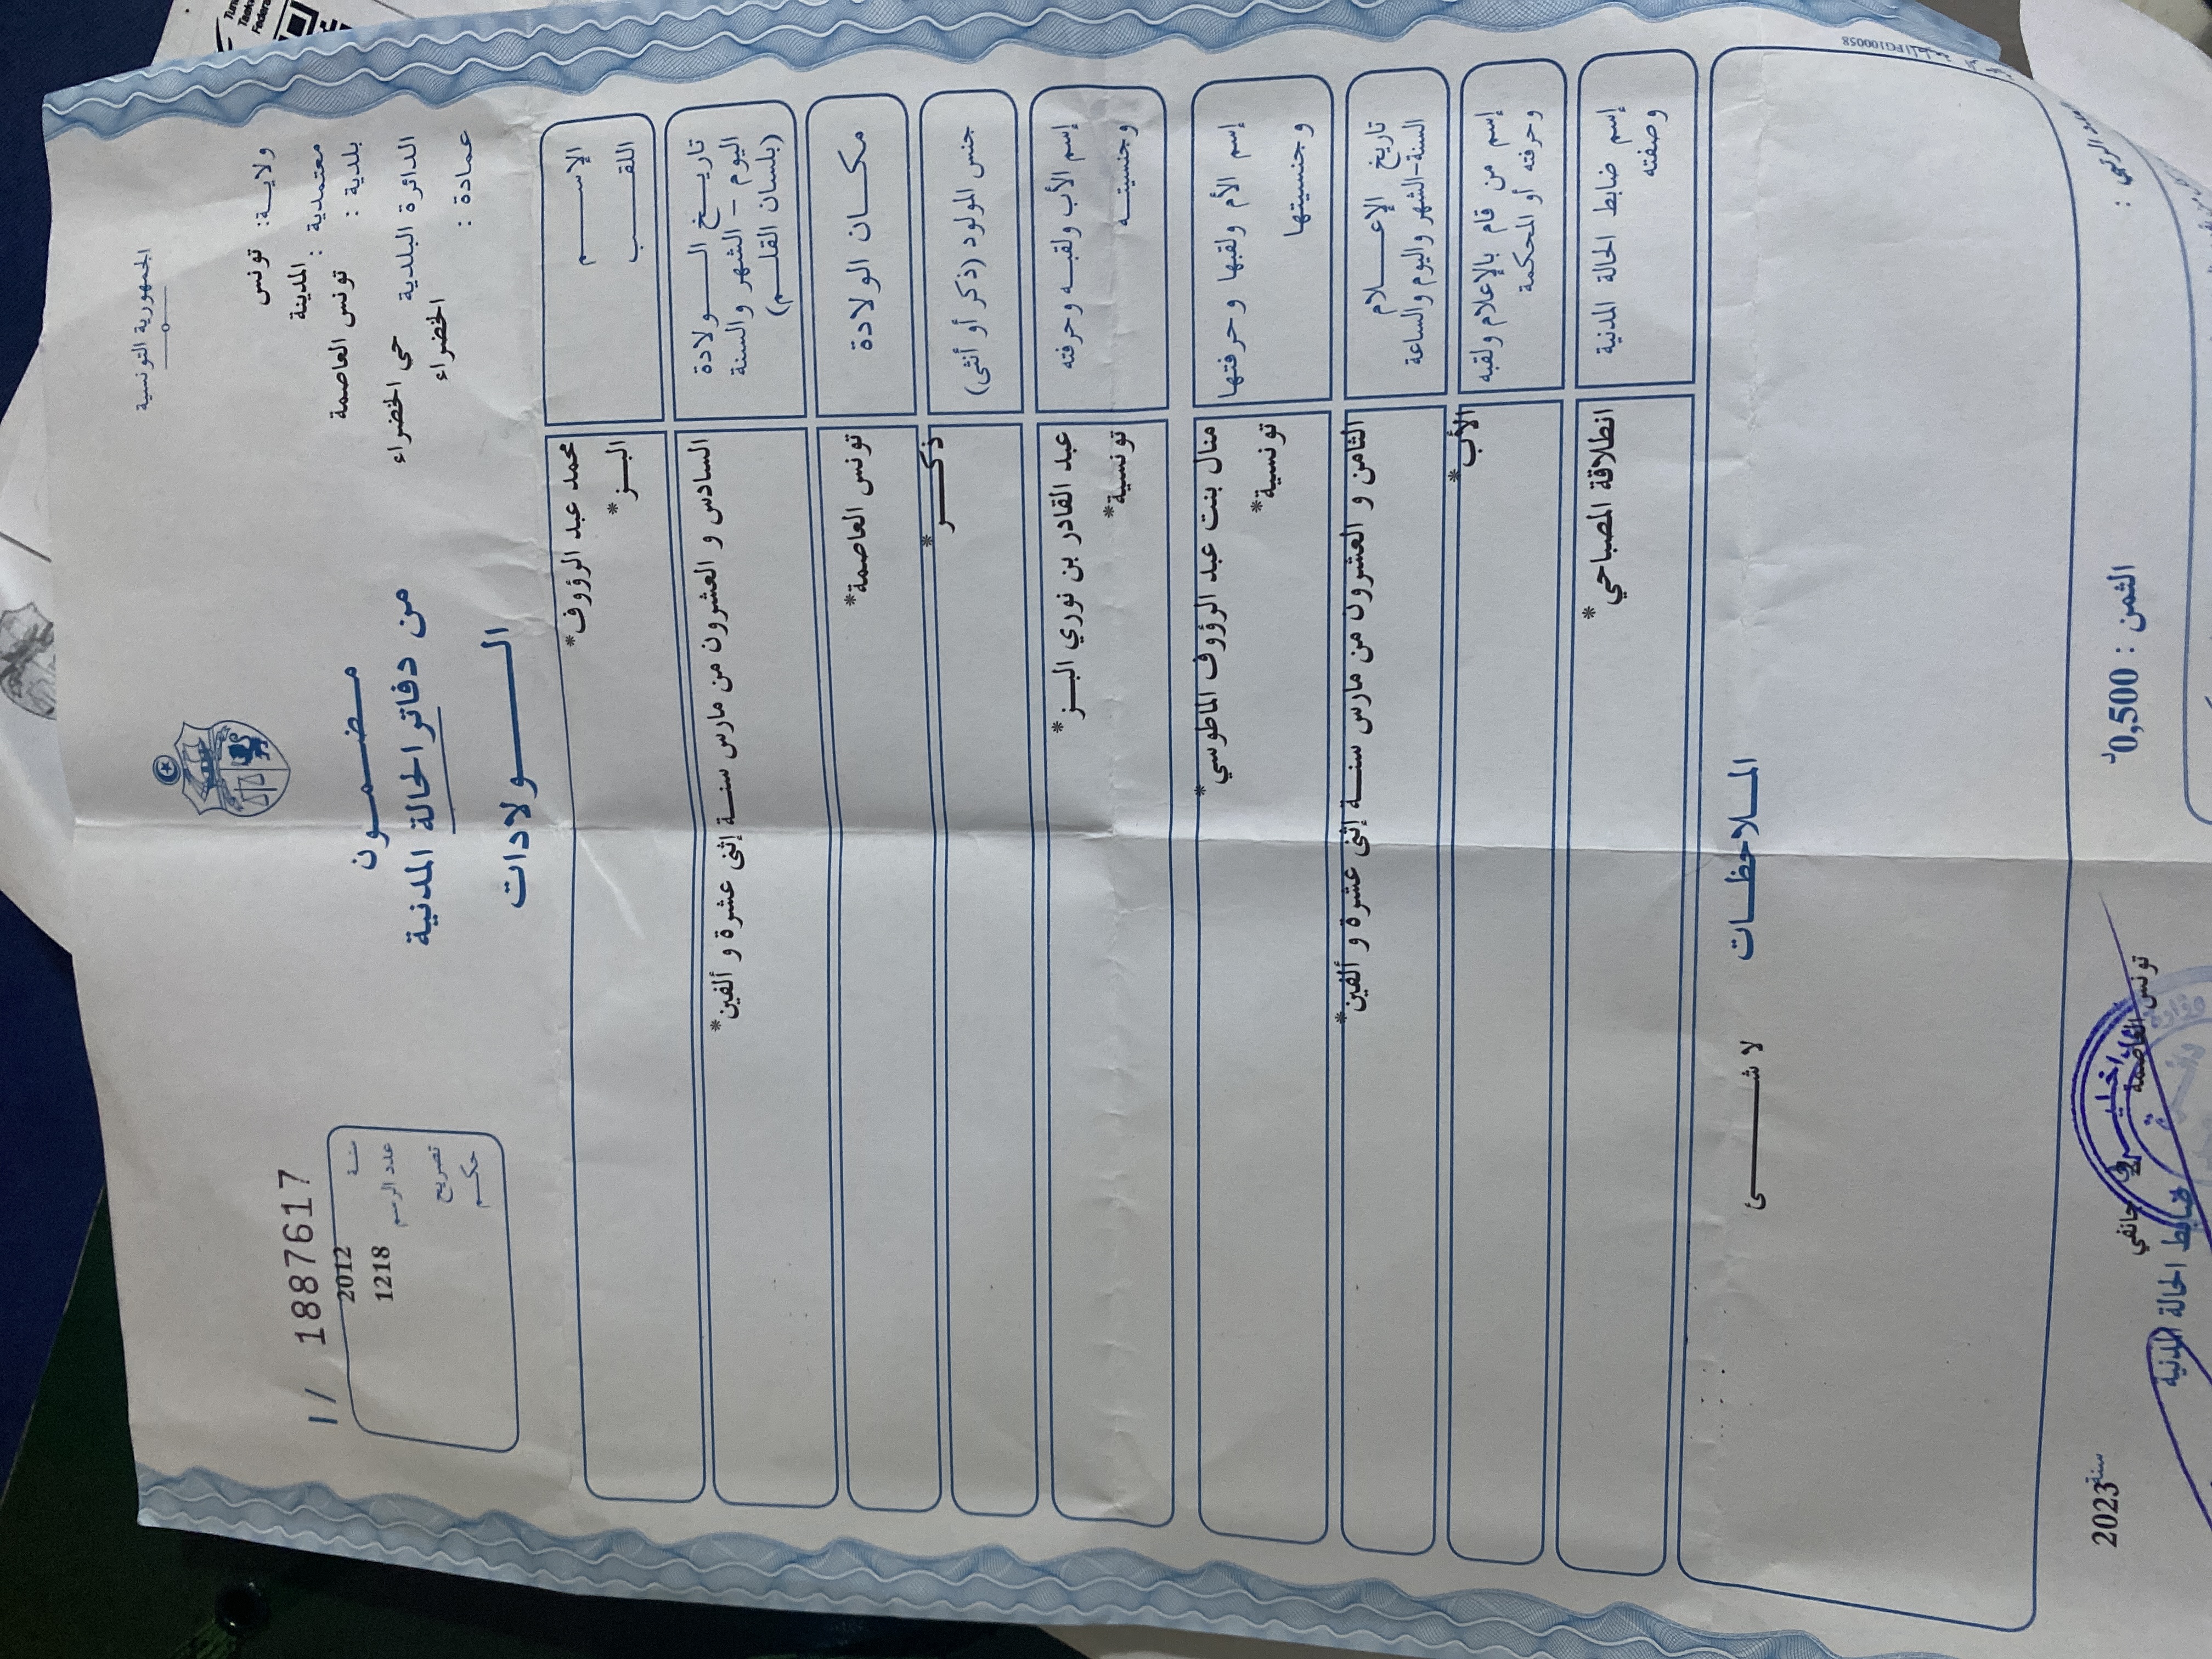 الجمهورية التونسية
ولاية: تونس
معتمدية : المدينة
بلدية : تونس العاصمة
الدائرة البلدية حي الخضراء
عمادة : الخضراء
مضمون
من دفاتر الحالة المدنية
الولادات
1/ 1887617
سنة 2012
عدد الرسم 1218
تصريح
حكم
الإسم محمد عبد الرؤوف*
اللقب البز*
تاريخ الولادة
اليوم - الشهر والسنة
(بلسان القلم)
السادس و العشرون من مارس سنة إثنى عشرة و ألفين*
مكان الولادة تونس العاصمة*
جنس المولود (ذكر أو أنثى) ذكر*
إسم الأب ولقبه وحرفته عبد القادر بن نوري البز*
وجنسيته تونسية*
إسم الأم ولقبها وحرفتها منال بنت عبد الرؤوف الماطوسي*
وجنسيتها تونسية*
تاريخ الإعلام
السنة-الشهر واليوم والساعة
الثامن و العشرون من مارس سنة إثنى عشرة و ألفين*
إسم من قام بالإعلام ولقبه
وحرفته أو المحكمة
الأب*
إسم ضابط الحالة المدنية
وصفته
انطلاقة المصباحي*
الملاحظات
لا شئ
الثمن : 0,500د
تونس العاصمة
جانفي
سنة 2023
ضابط الحالة المدنية